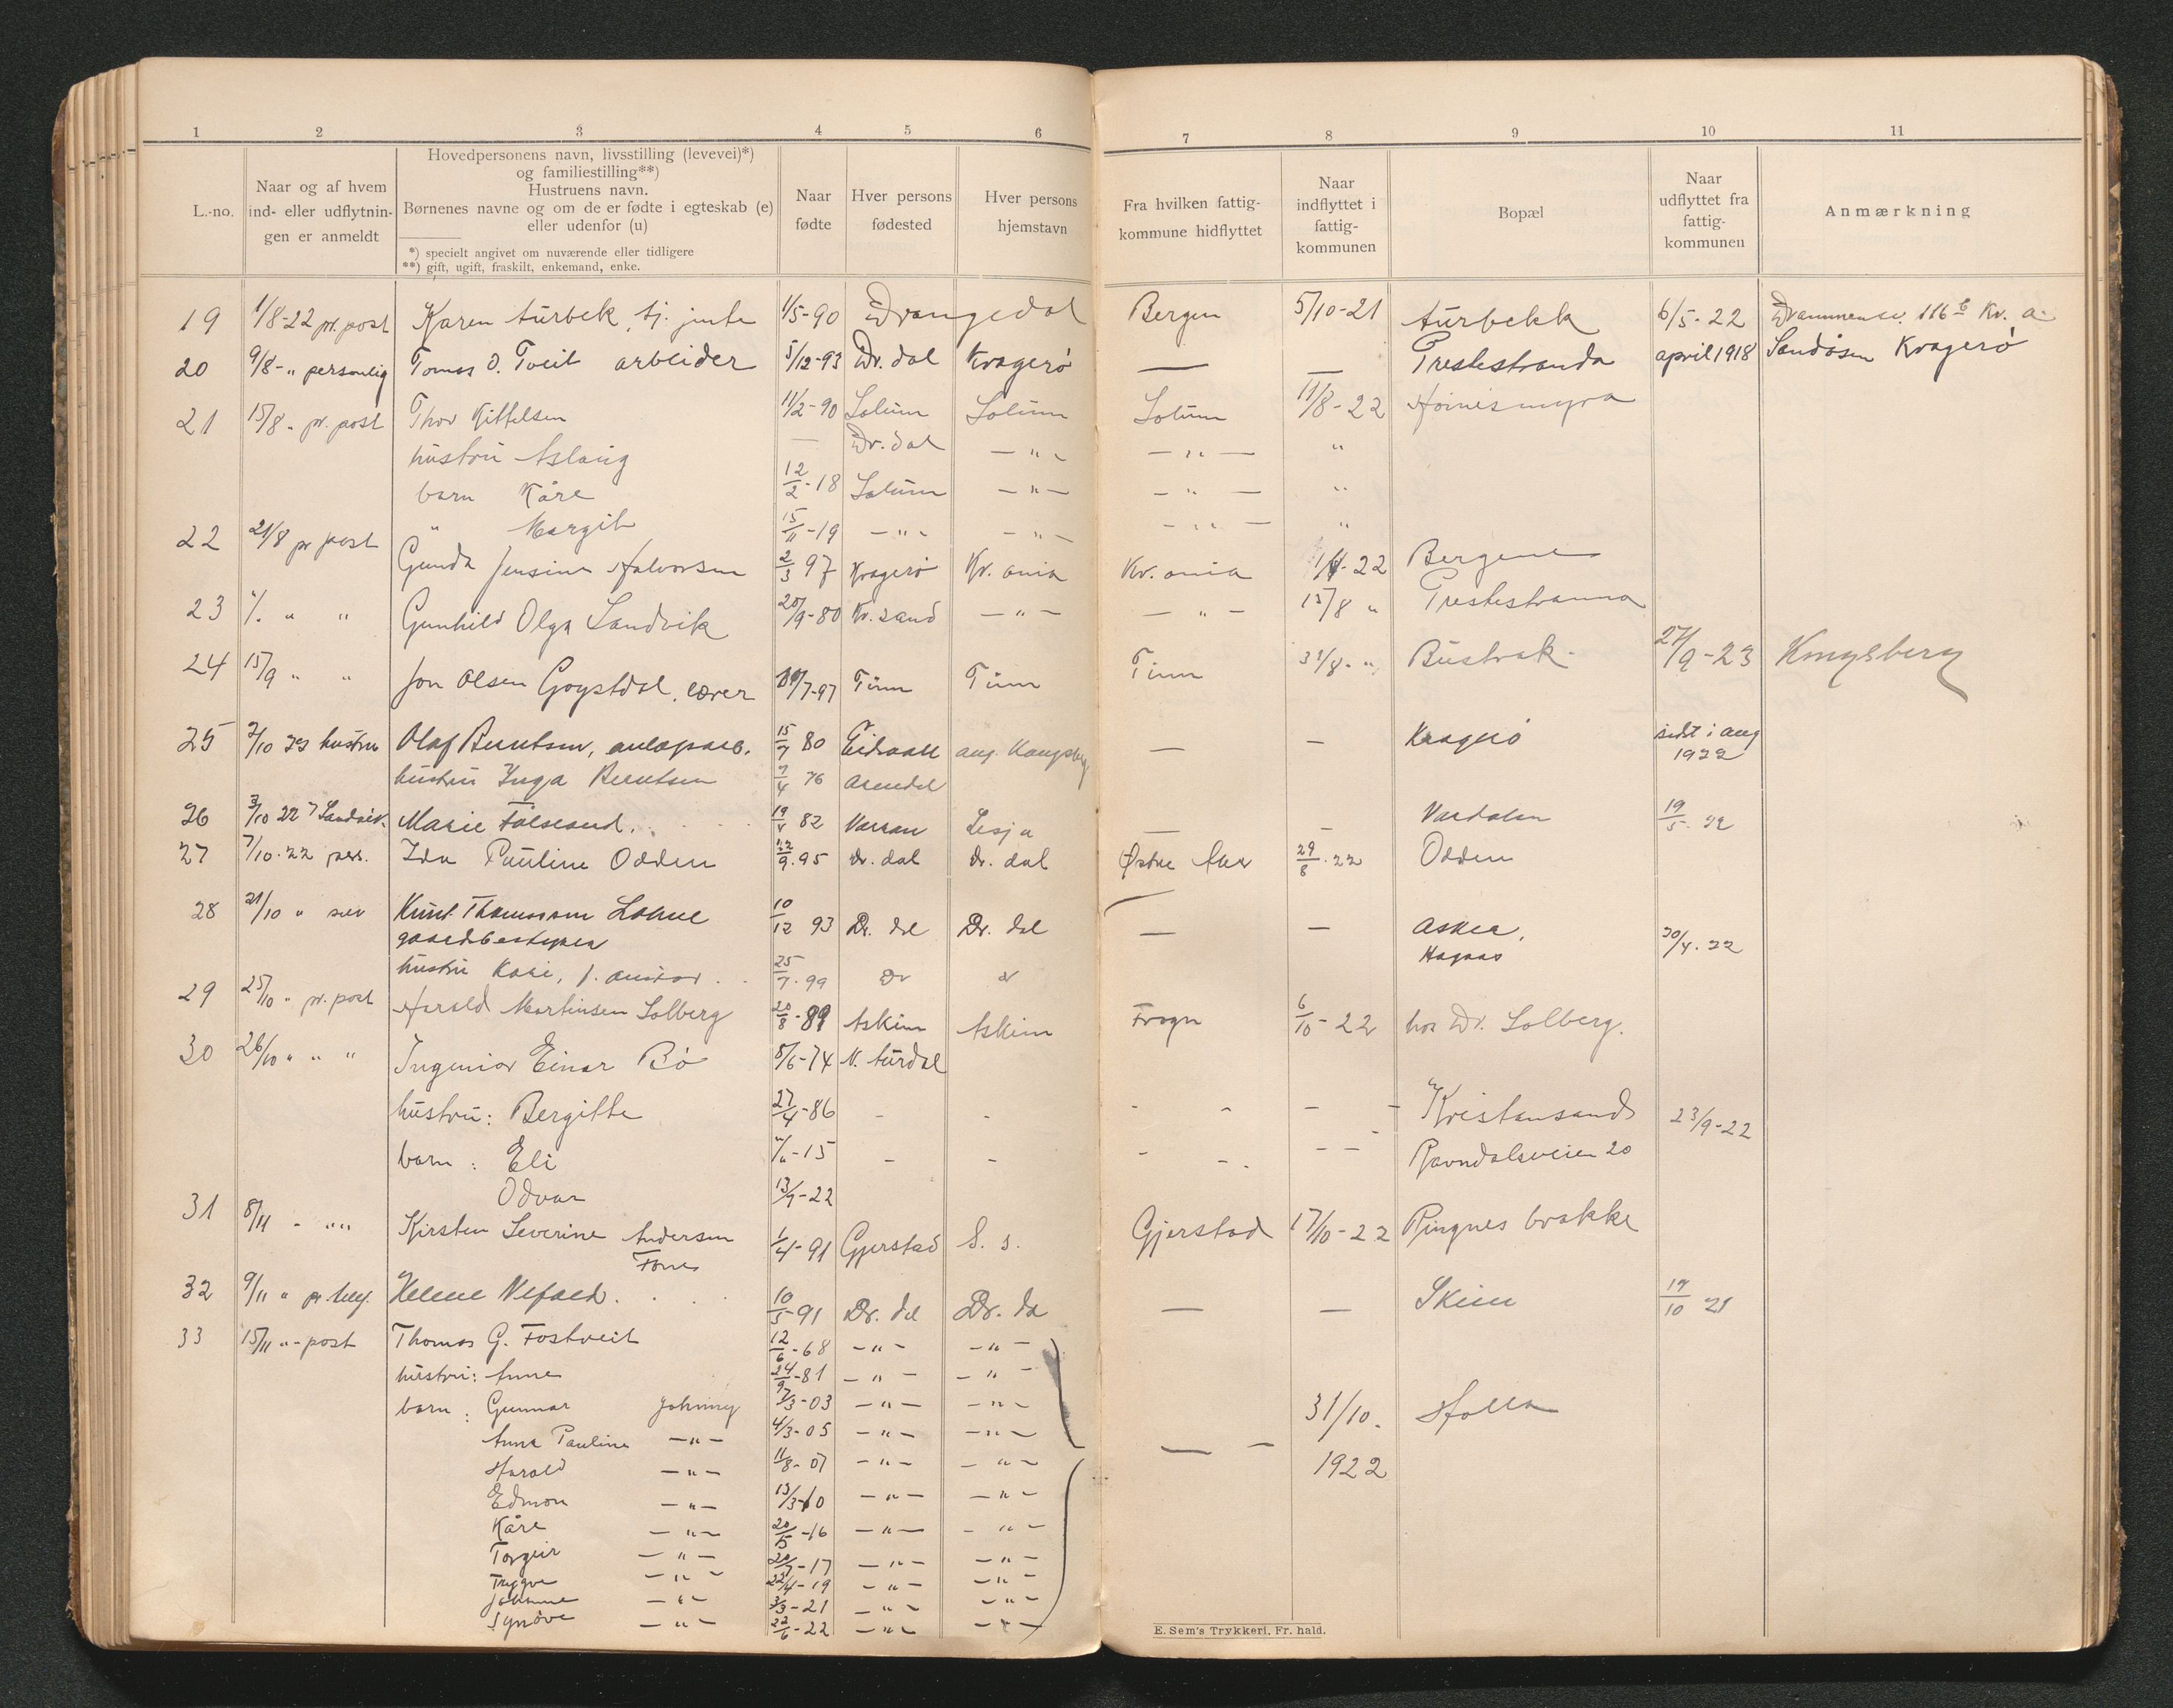 1 2 3 4 5 6 7 8 9 10 11
L.-no.
Naar og af hvem
ind- eller udflytnin-
gen er anmeldt
Hovedpersonens navn, livsstilling (levevei)*)
og familiestilling**)
Hustruens navn.
Børnenes navne og om de er fødte i egteskab (e)
eller udenfor (u)
*) specielt angivet om nuværende eller tidligere
**) gift, ugift, fraskilt, enkemand, enke.
Naar
fødte
Hver persons
fødested
Hver persons
hjemstavn
Fra hvilken fattig-
kommune hidflyttet
Naar
indflyttet i
fattig-
kommunen
Bopæl
Naar
udflyttet fra
fattig-
kommunen
Anmærkning
19 1/8-22 pr. post Karen Aurbek, tj. jente 1/5-90 Drangedal Bergen 5/10-21 Aurbekk 6/5-22 Drammensv. 116 b Kr. a.
20 9/8- " personlig Tomas O. Tveit arbeider 5/12-93 Dr. dal Kragerø — — Prestestranda april 1918 Sandåsen Kragerø
21 15/8 " pr. post Thor Kittelsen 11/2-90 Solum Solum Solum 11/8-22 Heinesmyra
hustru Aslaug — Dr. dal — " — — " — "
barn Kåre 12/2-18 Solum — " — — " — "
" Margit 15/11-19 — " — — " — — " — "
22 21/8 pr post Gunda Jensine Halvorsen 2/3 97 Kragerø Kr. ania Kr. ania -22 Bergene
23 "/. " " Gunhild Olga Sandvik 20/9-80 Kr. sand — " — — " — 15/8 " Prestestranna
24 15/9 " " Jon Olsen Gøystdal, lærer /7-97 Tinn Tinn Tinn 31/8- " Bustrak 27/9-23 Kongsberg
25 2/10 23 hustru Olaf Berntsen, anlægsarb. 15/7 80 Eidsvoll ang. Kongsberg — — Kragerø sidst i aug
1922
hustru Inga Berntsen 7/4 76 Arendal
26 3/10 22 Marie Følseland. 19/4 82 Lesja — — Vardalen 19/5. 22
27 7/10-22 pers. Ida Pauline Odden 22/9.95 Dr. dal Dr. dal Østre Aker 29/8.22 Odden
28 21/10 " Knut Thomassen Lohne 10/12 93 Dr. dal Dr. dal — — Asker, 20/4. 22
gaardbestyrer Hagaas
hustru Kari, f. 25/7.99 Dr Dr
29 25/10 " pr. post Harald Martinsen Solberg 20/8-89 Askim Askim Frogn 6/10-22 hos Dr. Solberg.
30 26/10 " " " Ingeniør Einar Bø 5/6-74 N. Aurdal
hustru: Bergitte 27/4-86 - - - - - - Kristansand 23/9-22
barn: Eli -15 - - - - - - Ravndalsveien 20
Odvar 13/7-22
31 8/11 - " " Kirsten Severine Andersen 1/4-91 Gjerstad S. s. Gjerstad 17/10-22 Ringnes brakke
32 9/11 " Helene Nefald. 10/5-91 Dr. dal Dr. da — — Skien 17/10 21
33 15/11 "-post Thomas G. Fostveit 12/6-68 — " — — " —
hustru: Anne 24/9-81 — " — — " —
barn: Gunnar Johnny /3-03 — " — — " — 31/10. Holla
Anna Pauline — " — 4/3-05 — " — — " — — —
Harald — " — 11/8-07 — " — — " — 1922
Edmon — " — 13/3-10 — " — — " —
Kåre — " — 20/5-16 — " — — " —
Torgeir — " — 20/7-17 — " — — " —
Trygve — " — 22/4-19 — " — — " —
Johanne — " — 3/3-21 — " — — " —
Synøve — " — 22/6-22 — " — — " —
E. Sem's Trykkeri, Fr. hald.